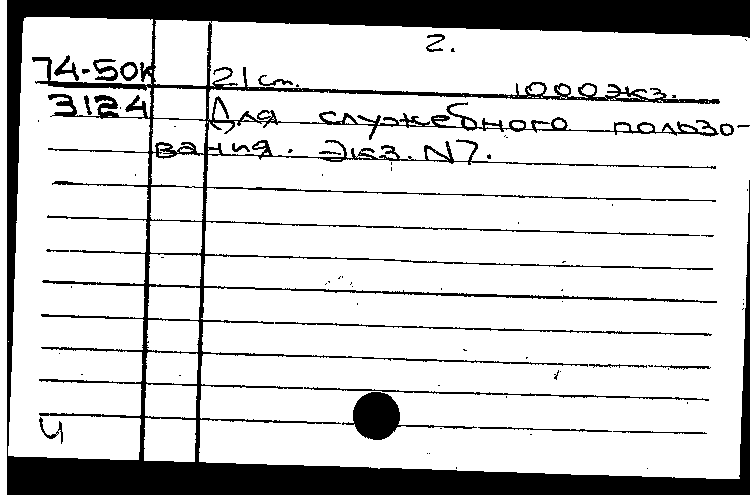 2.
74-50к 21 ст. 1000экз.
3124 Для служебного пользо-
вания. Экз. N7.
Ч